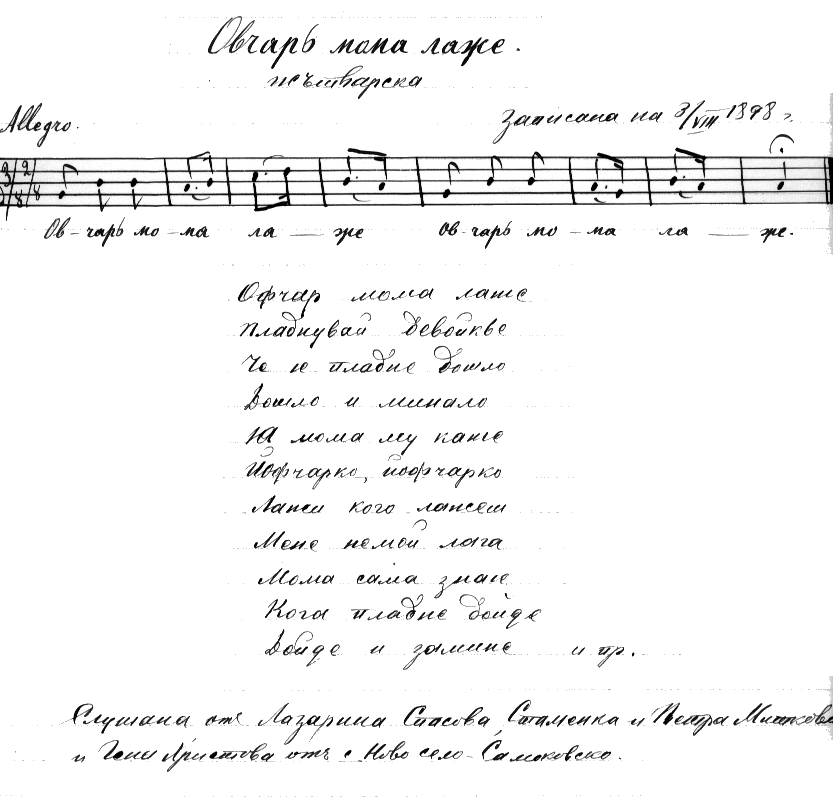 Овчарь мома лаже.
жътварска
Allegro.
Записана на 3/VIII 1898 г.
Ов-чарь мо-ма ла — же ов-чарь мо-ма ла — же.
Офчар мома лаже
Пладнувай девойкье
Че је пладне дошло
Дошло и минало
Ја мома му каже
Йофчарко, йофчарко
Лажи кого лажеш
Мене немой лага
Мома сама знаје
Кога пладне дойде
Дойде и замине и пр.
Слушана отъ Лазарина Спасова, Стаменка и Петра Миткова
и Гена Христова отъ с. Ново село - Самоковско.